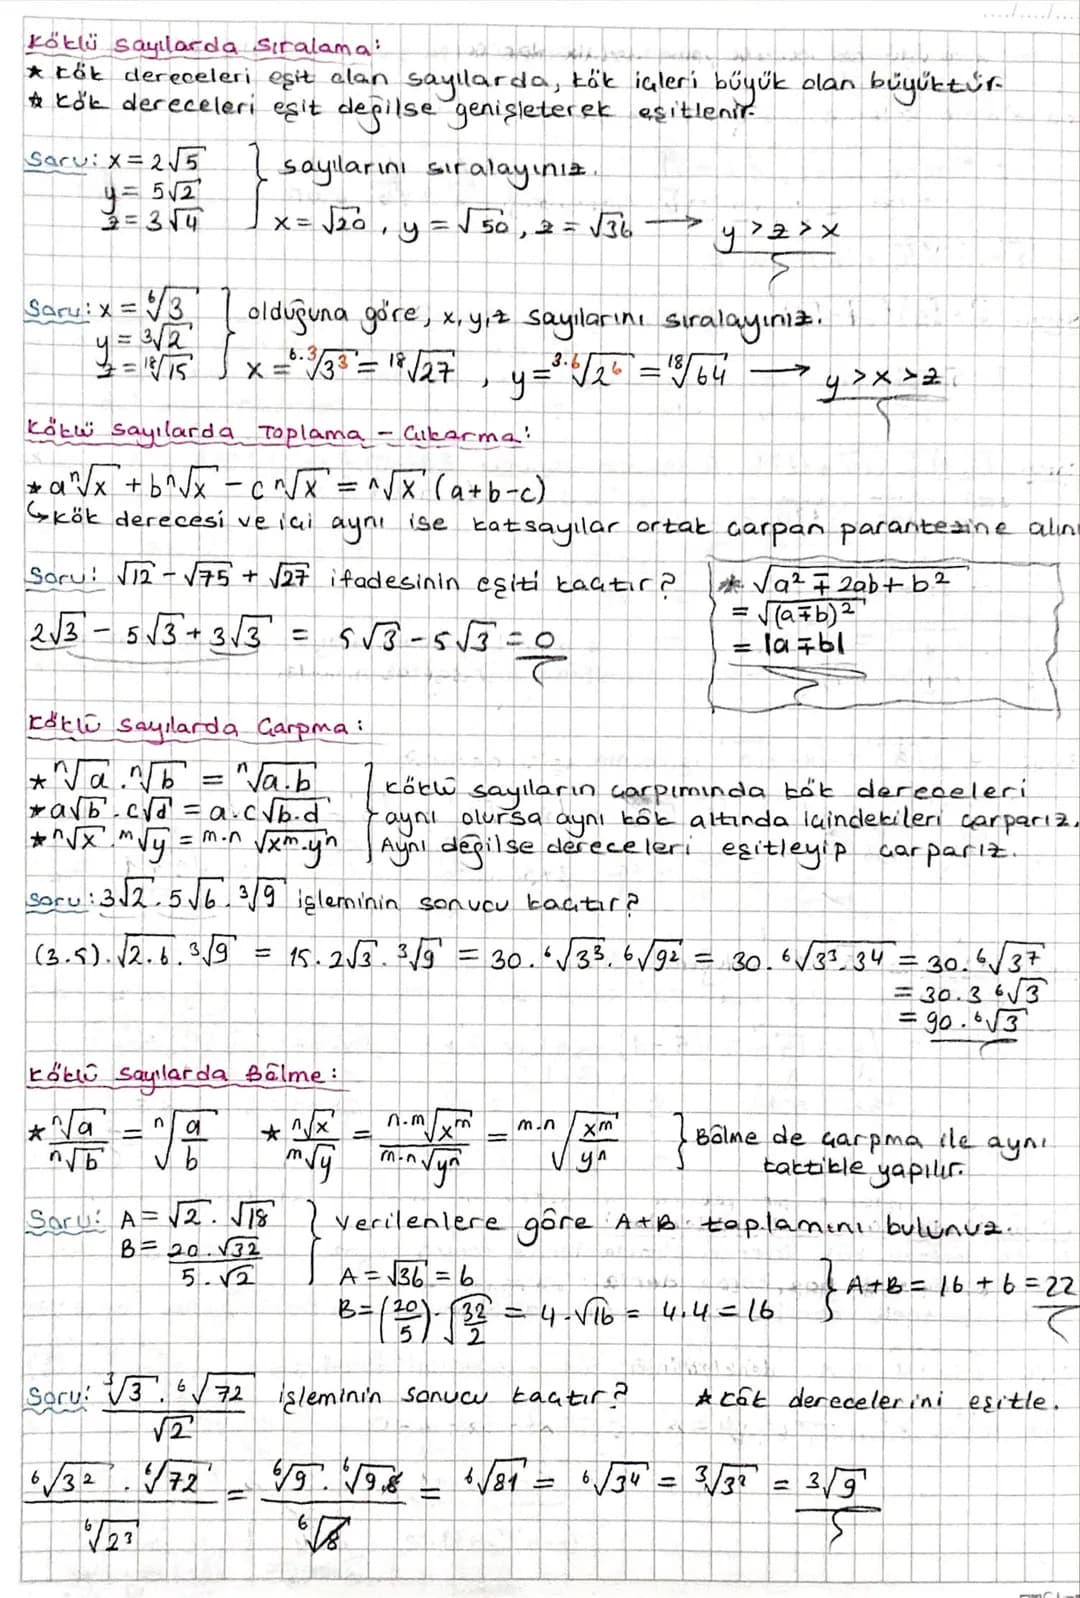 Köklü Sayılarda Sıralama:
* Kök dereceleri eşit olan sayılarda, kök içleri büyük olan büyüktür.
* Kök dereceleri eşit değilse genişleterek eşitlenir.
Soru: x = 2√5
y = 5√2
z = 3√4
} sayılarını sıralayınız.
x = √20, y = √50, z = √36 → y > z > x
Soru: x = ⁶√3
y = ³√2
z = ¹⁸√15
} olduğuna göre, x, y, z sayılarını sıralayınız.
x = ⁶·³√3³ = ¹⁸√27, y = ³·⁶√2⁶ = ¹⁸√64 → y > x > z
Köklü Sayılarda Toplama - Çıkarma:
* aⁿ√x + bⁿ√x - cⁿ√x = ⁿ√x (a+b-c)
↳ Kök derecesi ve içi aynı ise katsayılar ortak çarpan parantezine alını
Soru: √12 - √75 + √27 ifadesinin eşiti kaçtır?
2√3 - 5√3 + 3√3 = 5√3 - 5√3 = 0
* √a² ∓ 2ab + b²
= √(a∓b)²
= |a∓b|
Köklü Sayılarda Çarpma:
* ⁿ√a . ⁿ√b = ⁿ√a.b
* a√b . c√d = a.c√b.d
* ⁿ√x . ᵐ√y = ᵐ·ⁿ√xᵐ.yⁿ
} Köklü sayıların çarpımında kök dereceleri
aynı olursa aynı kök altında içindekileri çarparız,
Aynı değilse dereceleri eşitleyip çarparız.
Soru: 3√2 . 5√6 . ³√9 işleminin sonucu kaçtır?
(3.5).√2.6 . ³√9 = 15.2√3 . ³√9 = 30.⁶√3³ . ⁶√9² = 30.⁶√3³.3⁴ = 30.⁶√3⁷
= 30.3 ⁶√3
= 90.⁶√3
Köklü Sayılarda Bölme:
* ⁿ√a / ⁿ√b = ⁿ√a/b * ⁿ√x / ᵐ√y = ⁿ·ᵐ√xᵐ / ᵐ·ⁿ√yⁿ = ᵐ·ⁿ√xᵐ/yⁿ } Bölme de çarpma ile aynı
taktikle yapılır.
Soru: A = √2 . √18
B = 20.√32 / 5.√2
} verilenlere göre A+B toplamını bulunuz.
A = √36 = 6
B = (20/5).√32/2 = 4.√16 = 4.4 = 16
} A+B = 16 + 6 = 22
Soru: ³√3 . ⁶√72 / √2 işleminin sonucu kaçtır? * Kök derecelerini eşitle.
⁶√3² . ⁶√72 / ⁶√2³ = ⁶√9 . ⁶√9.8 / ⁶√8 = ⁶√81 = ⁶√3⁴ = ³√3² = ³√9